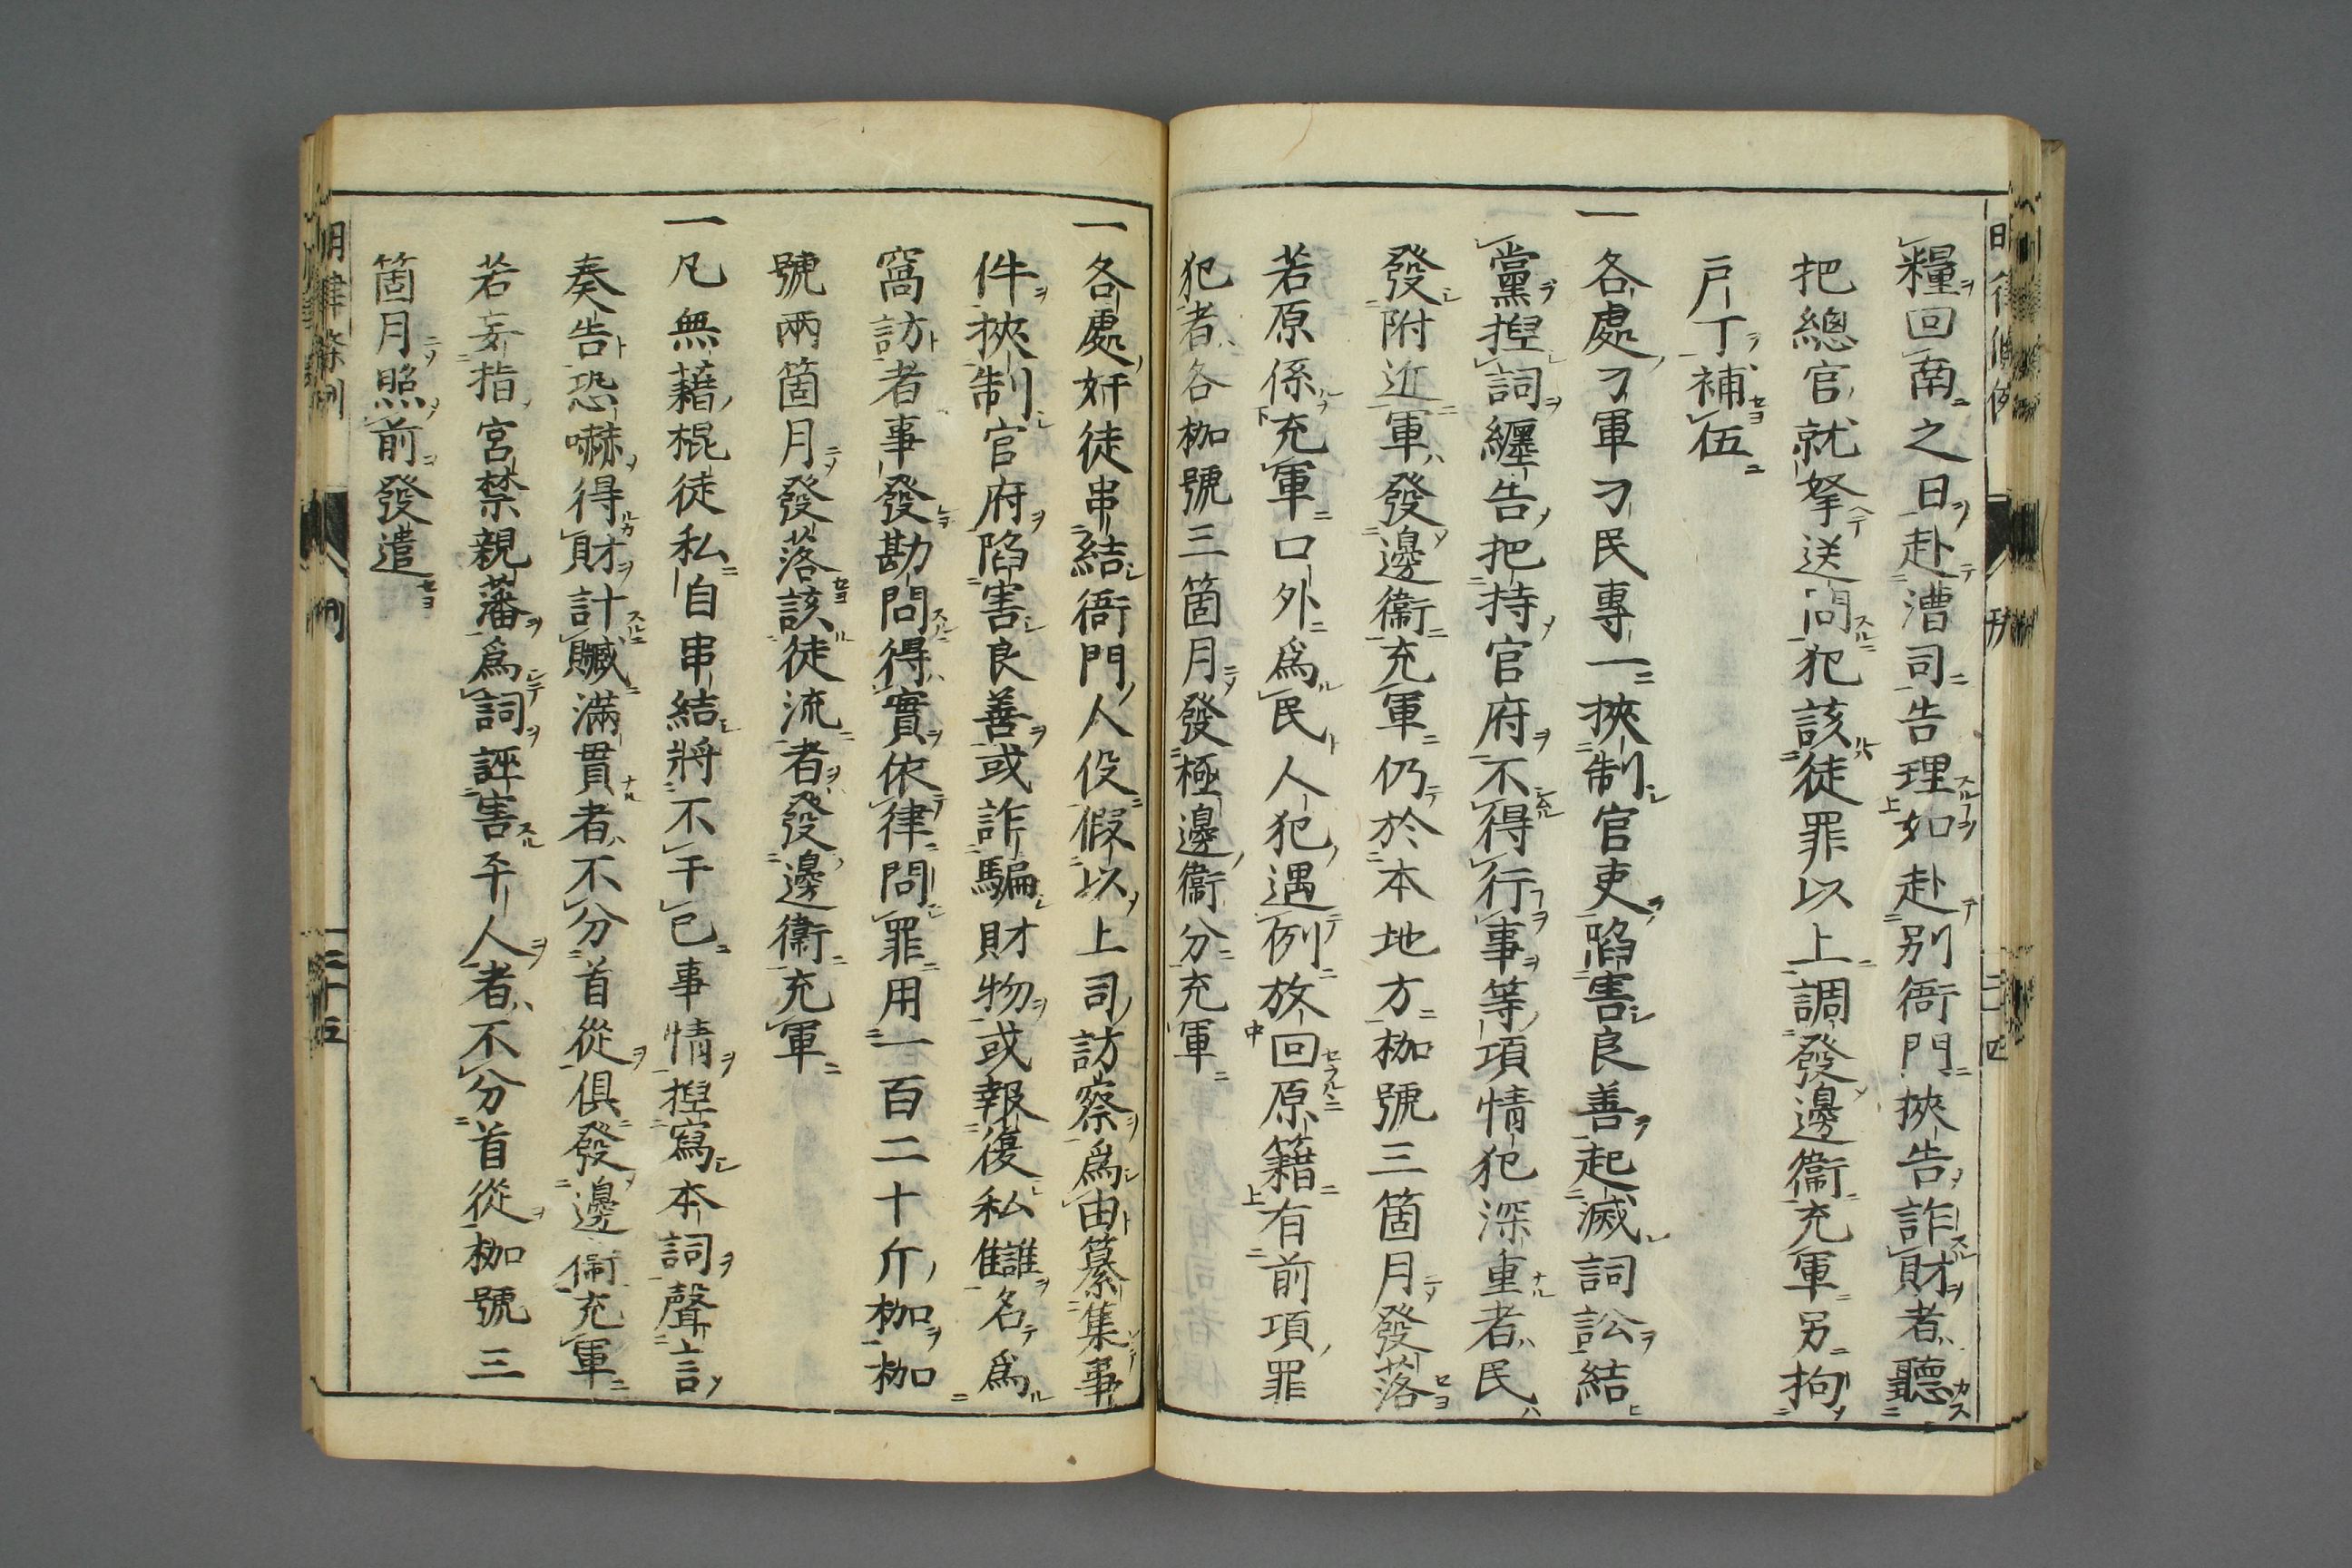 糧回南之日赴漕司告理如赴別衙門挾告詐財者聽
把總官就拏送問犯該徒罪以上調發邊衞充軍另拘
戶丁補伍
一各處刁軍刁民專一挾制官吏陷害良善起滅詞訟結
黨揑詞纏告把持官府不得行事等項情犯深重者民
發附近軍發邊衞充軍仍於本地方枷號三箇月發落
若原係充軍口外爲民人犯遇例放回原籍有前項罪
犯者各枷號三箇月發極邊衞分充軍
一各處奸徒串結衙門人役假以上司訪察爲由纂集事
件挾制官府陷害良善或詐騙財物或報復私讎名爲
窩訪者事發勘問得實依律問罪用一百二十斤枷枷
號兩箇月發落該徒流者發邊衞充軍
一凡無藉棍徒私自串結將不干己事情揑寫本詞聲言
奏告恐嚇得財計贓滿貫者不分首從俱發邊衞充軍
若妄指宮禁親藩爲詞誣害平人者不分首從枷號三
箇月照前發遣
明律條例
刑
二十五